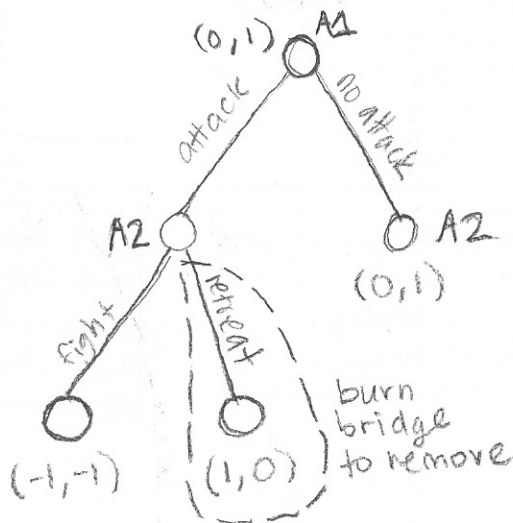 A1
(0,1)
attack
no attack
A2
A2
(0,1)
fight
retreat
burn
bridge
to remove
(-1,-1)
(1,0)